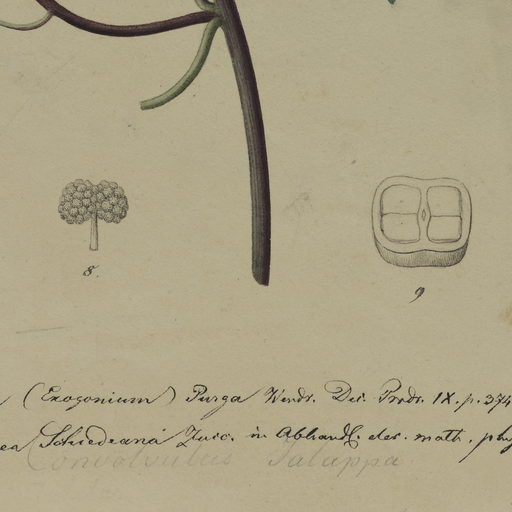 8.
9
(Exogonium) Purga Wendr. Dec. Prodr. IX. p. 374
ea Schiedeana Zucc. in Abhandl. der. math. phy
Convolvulus Jalappa